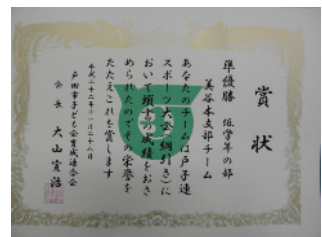 賞状
準優勝 低学年の部
美谷本支部チーム
あなたのチームは戸子連
スポーツ大会(綱引き)に
おいて頭書の成績をおさ
められたのでその栄誉を
たたえこれを賞します
平成二十二年十一月二十八日
戸田市子ども会育成連合会
会長 大山宣浩